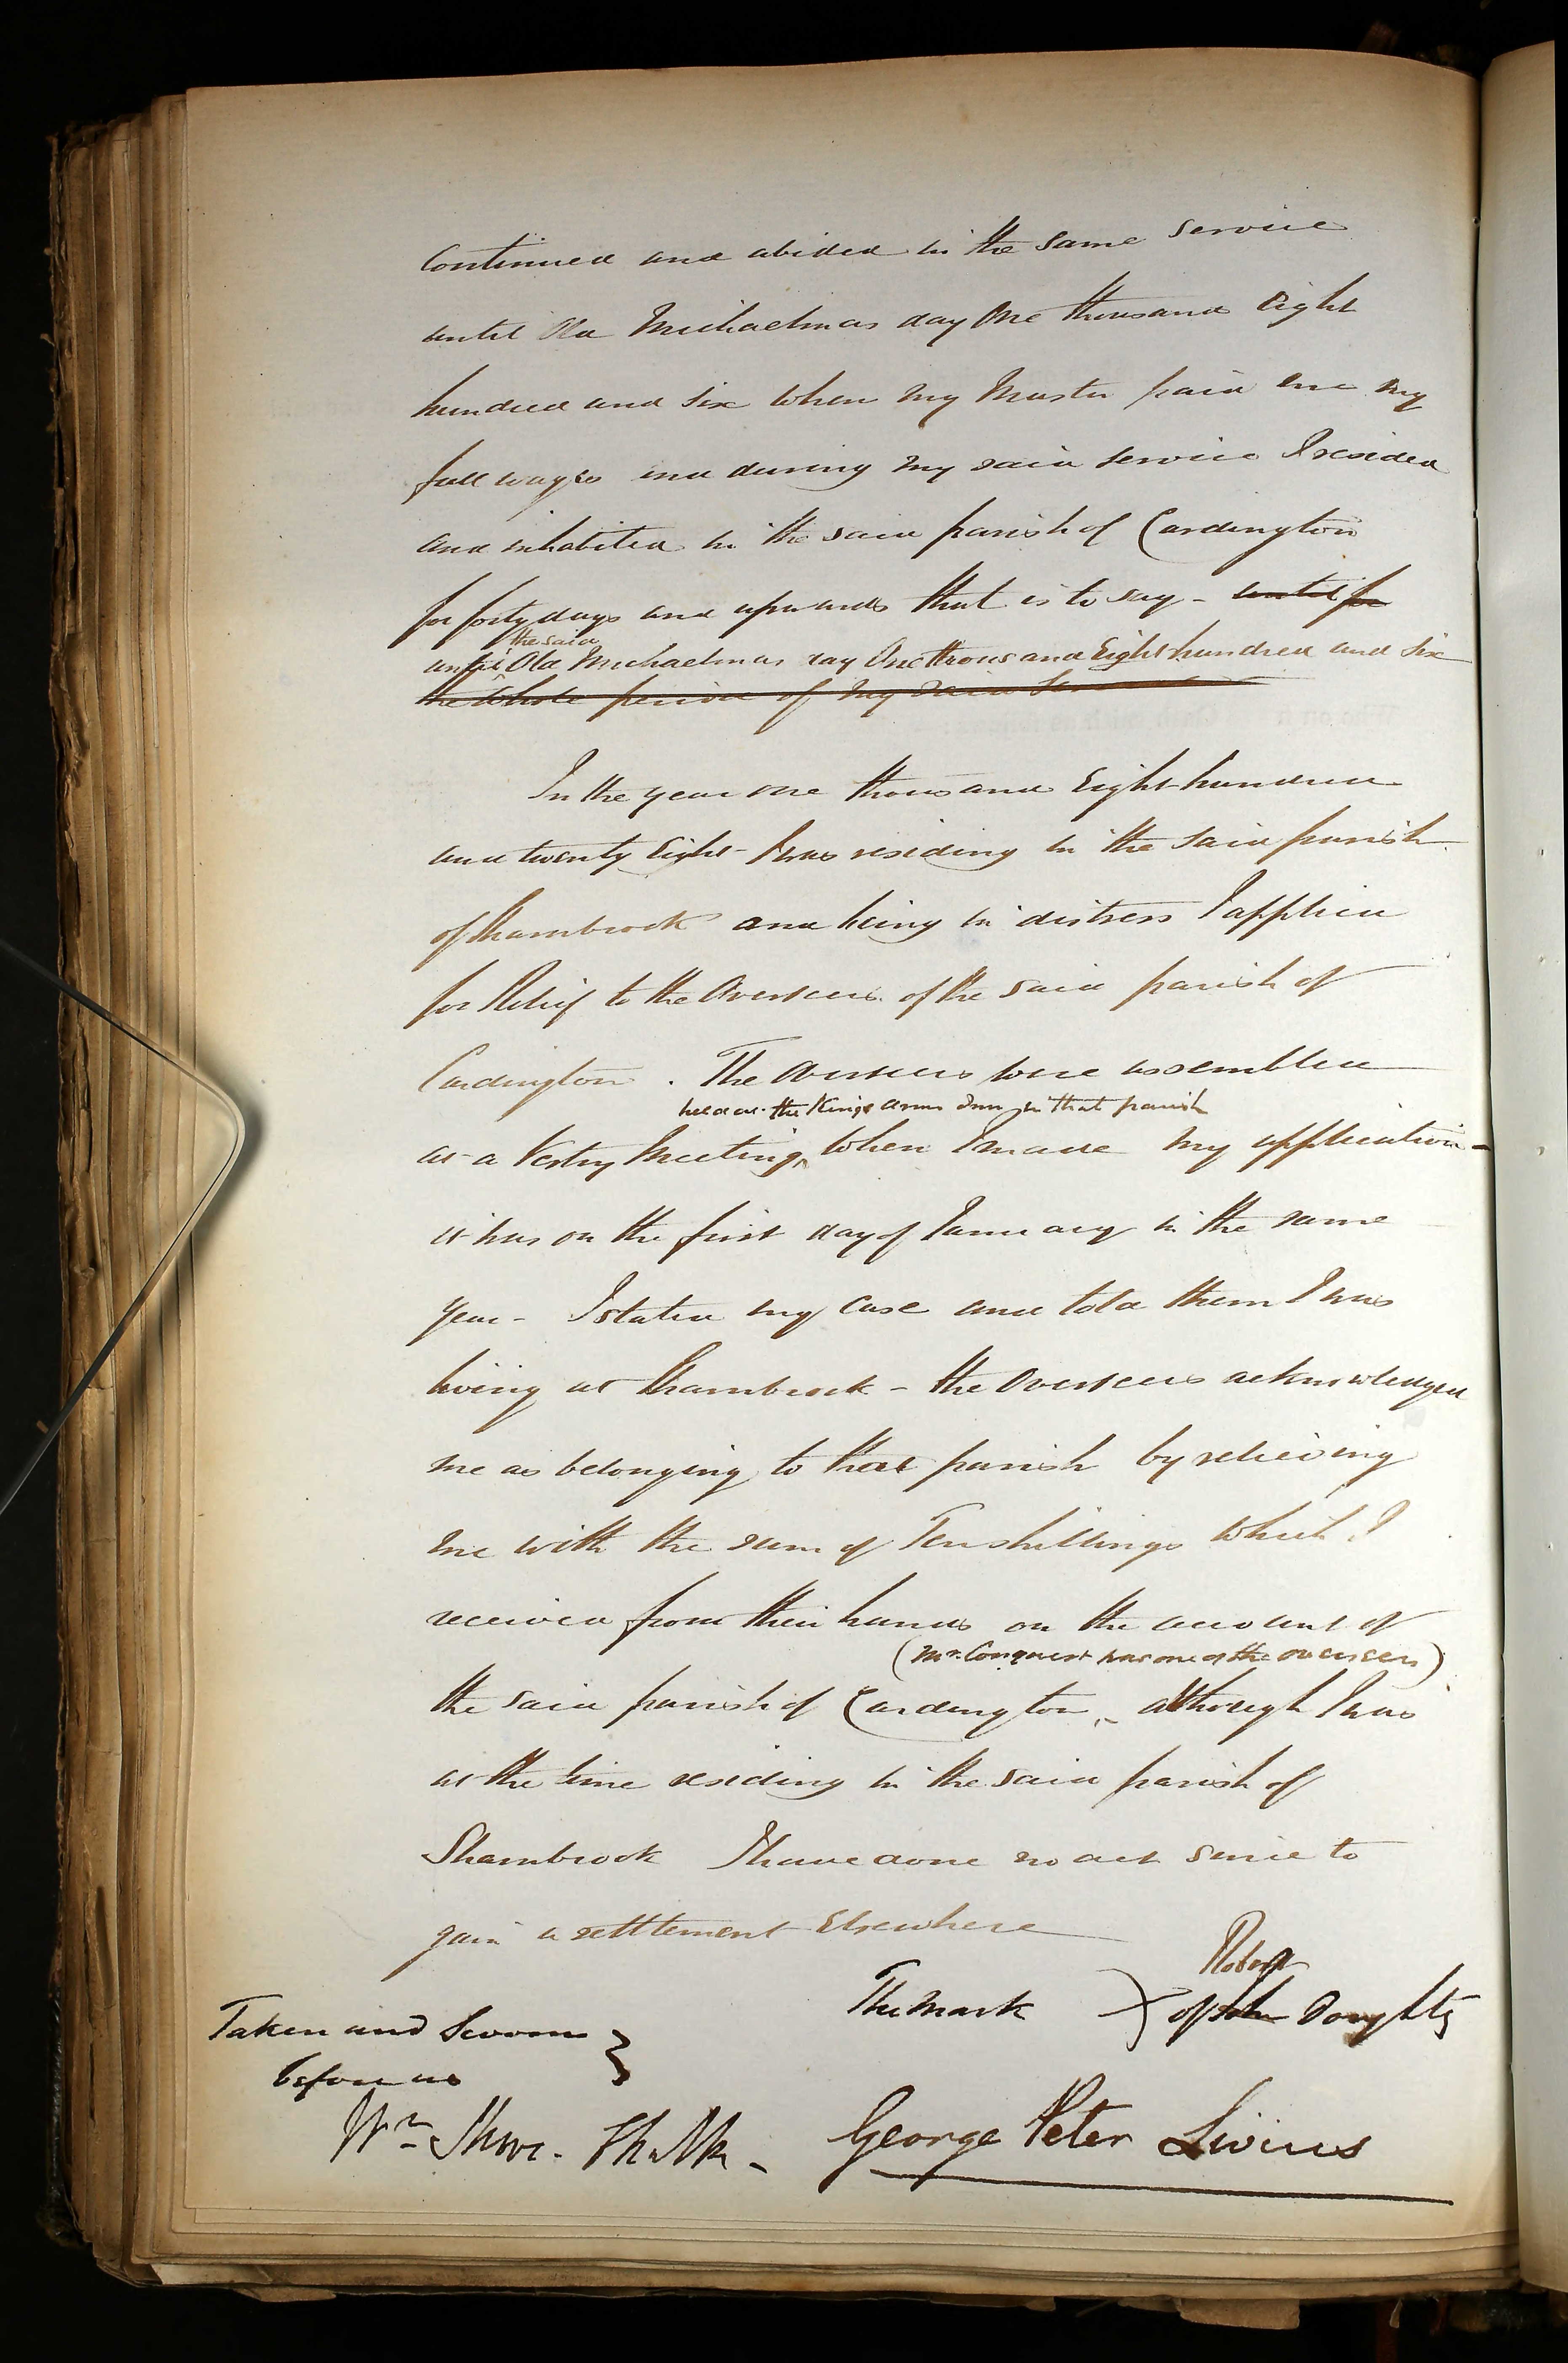 Continued and abided in the same service
until Old Michaelmas day One thousand Eight
hundred and six when my Master paid me my
full wages and during my said service I resided
and inhabited in the said parish of Cardington
for forty days and upwards that is to say - until for
the said
until Old Michaelmas day One thousand Eight hundred and six
the whole period of my said Service
In the year one thousand Eight hundred
and twenty Eight I was residing in the said parish
of Sharnbrook and being in distress I applied
for Relief to the Overseers of the said parish of
Cardington. The Overseers were assembled
held at the Kings Arms Inn in that parish
at a Vestry Meeting, when I made my application -
it was on the first day of January in the same
year - I stated my case and told them I was
living at Sharnbrook - the Overseers acknowledged
me as belonging to that parish by relieving
me with the sum of Ten shillings which I
received from their hands on the account of
(Mr. Conquest was one of the overseers)
the said parish of Cardington - although I was
at the time residing in the said parish of
Sharnbrook I have done no act since to
gain a settlement Elsewhere
Robert
The Mark X of John Doughty
Taken and Sworn }
before us
Wm
George Peter Livius